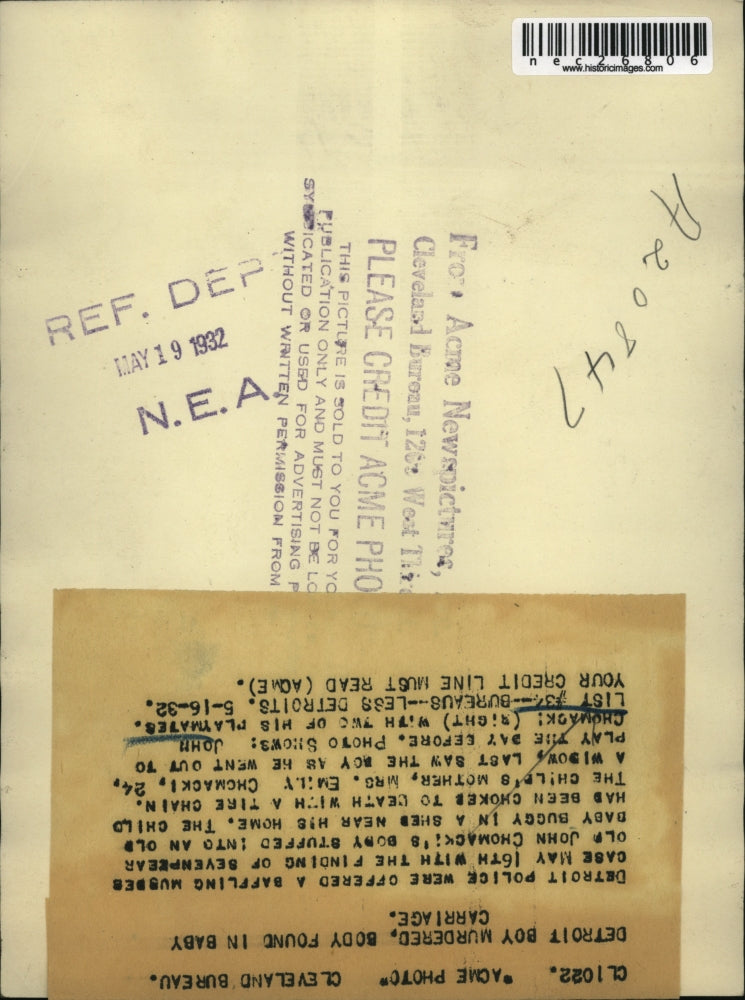 nec26806
www.historicimages.com
A20847
REF. DEP
MAY 19 1932
N.E.A.
From Acme Newspictures,
Cleveland Bureau, West
PLEASE CREDIT ACME PHO
THIS PICTURE IS SOLD TO YOU FOR YO
PUBLICATION ONLY AND MUST NOT BE LO
SYNDICATED OR USED FOR ADVERTISING P
WITHOUT WRITTEN PERMISSION FROM
CL1022. "ACME PHOTO" CLEVELAND BUREAU.
DETROIT BOY MURDERED, BODY FOUND IN BABY
CARRIAGE.
DETROIT POLICE WERE OFFERED A BAFFLING MURDER
CASE MAY 16TH WITH THE FINDING OF SEVENYEAR
OLD JOHN CHOMACKI'S BODY STUFFED INTO AN OLD
BABY BUGGY IN A SHED NEAR HIS HOME. THE CHILD
HAD BEEN CHOKED TO DEATH WITH A TIRE CHAIN.
THE CHILD'S MOTHER, MRS. EMILY CHOMACKI, 24,
A WIDOW, LAST SAW THE BOY AS HE WENT OUT TO
PLAY THE DAY BEFORE. PHOTO SHOWS: JOHN
CHOMACKI (RIGHT) WITH TWO OF HIS PLAYMATES.
LIST #34--BUREAUS--LESS DETROITS. 5-16-32.
YOUR CREDIT LINE MUST READ (ACME).